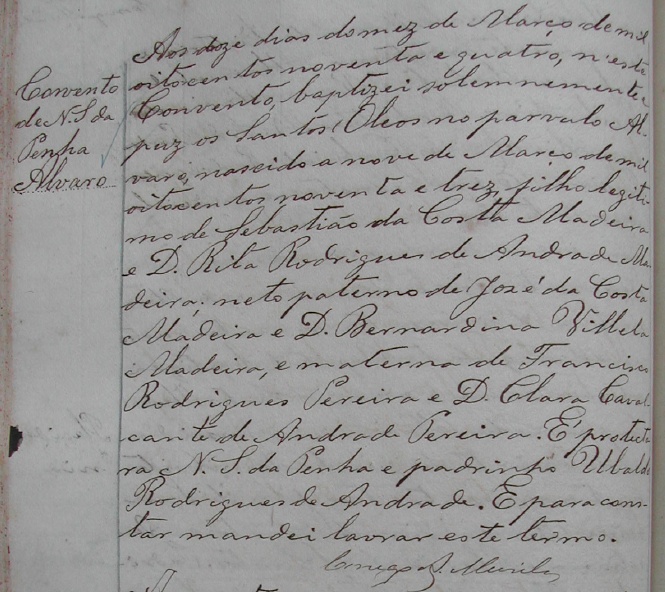 Convento
de N. S. da
Penha
Alvaro
Aos doze dias do mez de Março de mil
oitocentos noventa e quatro, n'este
Convento, baptizei solemnemente e
puz os Santos Oleos no parvulo Al-
varo, nascido a nove de Março de mil
oitocentos noventa e trez, filho legiti-
mo de Sebastião da Costa Madeira
e D. Rita Rodrigues de Andrade Ma-
deira; neto paterno de José da Costa
Madeira e D. Bernardina Villela
Madeira, e materna de Francisco
Rodrigues Pereira e D. Clara Caval-
cante de Andrade Pereira. É protecto
ra N. S. da Penha e padrinho Ubaldo
Rodrigues de Andrade. E para cons-
tar mandei lavrar este termo.
Conego